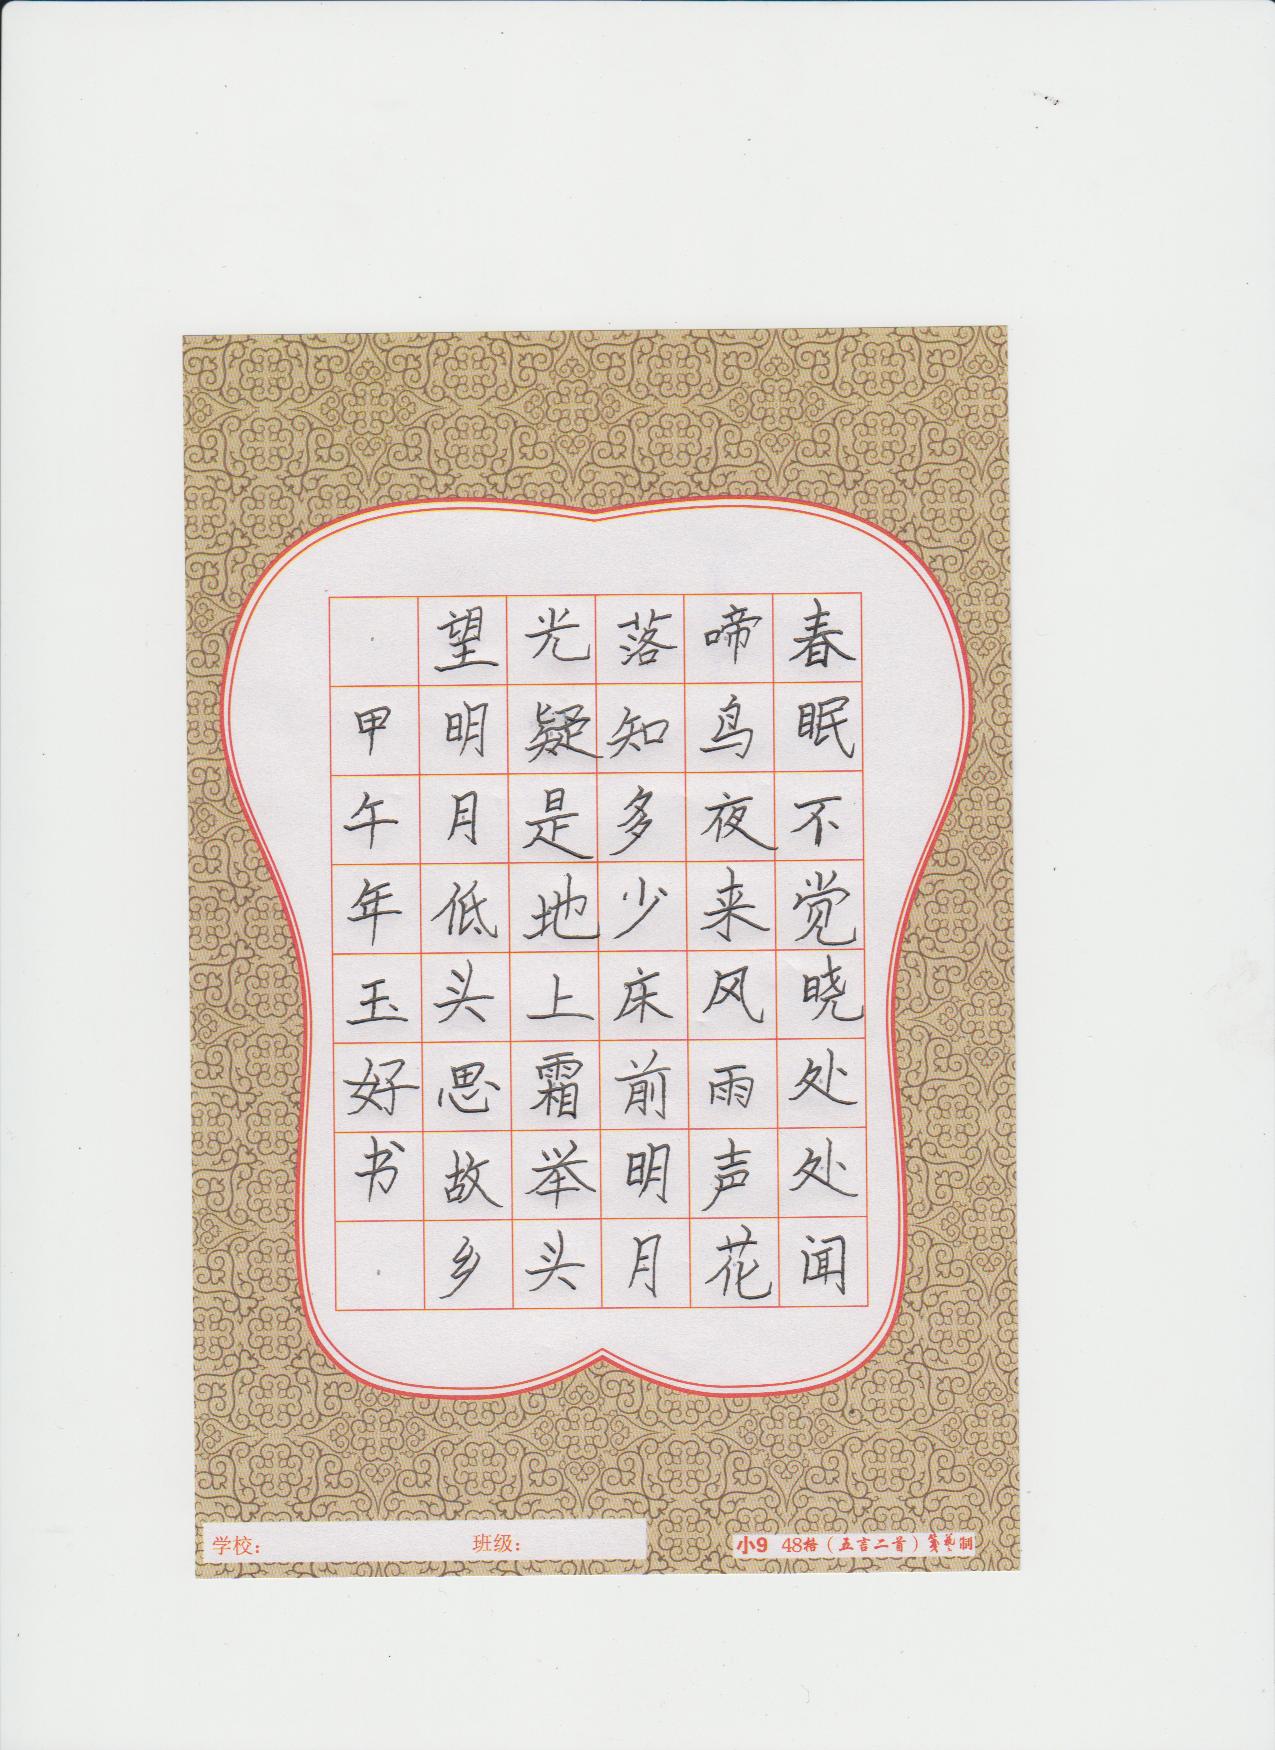 春眠不觉晓处处闻
啼鸟夜来风雨声花
落知多少床前明月
光疑是地上霜举头
望明月低头思故乡
甲午年玉好书
学校： 班级：
小9 48格（五言二首）笺艺制